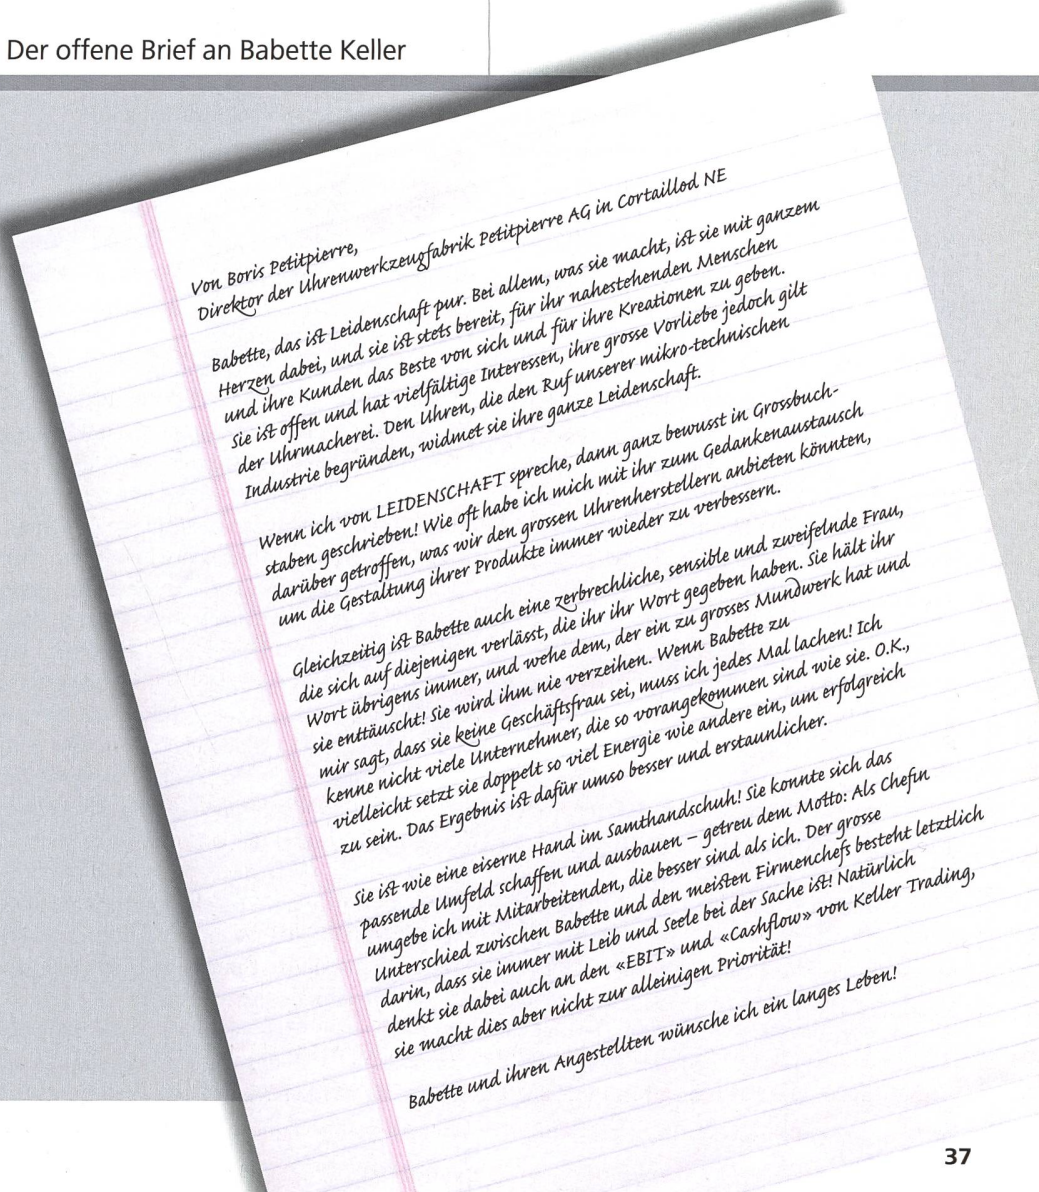 Der offene Brief an Babette Keller
Von Boris Petitpierre,
Direktor der Uhrenwerkzeugfabrik Petitpierre AG in Cortaillod NE
Babette, das ist Leidenschaft pur. Bei allem, was sie macht, ist sie mit ganzem
Herzen dabei, und sie ist stets bereit, für ihr nahestehenden Menschen
und ihre Kunden das Beste von sich und für ihre Kreationen zu geben.
Sie ist offen und hat vielfältige Interessen, ihre grosse Vorliebe jedoch gilt
der Uhrmacherei. Den Uhren, die den Ruf unserer mikro-technischen
Industrie begründen, widmet sie ihre ganze Leidenschaft.
Wenn ich von LEIDENSCHAFT spreche, dann ganz bewusst in Grossbuch-
staben geschrieben! Wie oft habe ich mich mit ihr zum Gedankenaustausch
darüber getroffen, was wir den grossen Uhrenherstellern anbieten könnten,
um die Gestaltung ihrer Produkte immer wieder zu verbessern.
Gleichzeitig ist Babette auch eine zerbrechliche, sensible und zweifelnde Frau,
die sich auf diejenigen verlässt, die ihr ihr Wort gegeben haben. Sie hält ihr
Wort übrigens immer, und wehe dem, der ein zu grosses Mundwerk hat und
sie enttäuscht! Sie wird ihm nie verzeihen. Wenn Babette zu
mir sagt, dass sie keine Geschäftsfrau sei, muss ich jedes Mal lachen! Ich
kenne nicht viele Unternehmer, die so vorangekommen sind wie sie. O.K.,
vielleicht setzt sie doppelt so viel Energie wie andere ein, um erfolgreich
zu sein. Das Ergebnis ist dafür umso besser und erstaunlicher.
Sie ist wie eine eiserne Hand im Samthandschuh! Sie konnte sich das
passende Umfeld schaffen und ausbauen – getreu dem Motto: Als Chefin
umgebe ich mit Mitarbeitenden, die besser sind als ich. Der grosse
Unterschied zwischen Babette und den meisten Firmenchefs besteht letztlich
darin, dass sie immer mit Leib und Seele bei der Sache ist! Natürlich
denkt sie dabei auch an den «EBIT» und «Cashflow» von Keller Trading,
sie macht dies aber nicht zur alleinigen Priorität!
Babette und ihren Angestellten wünsche ich ein langes Leben!
37